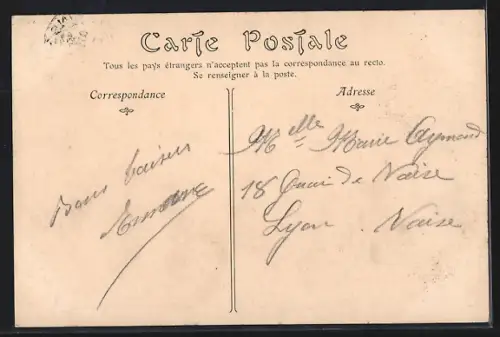 Carte Postale
Tous les pays étrangers n'acceptent pas la correspondance au recto.
Se renseigner à la poste.
Correspondance
Bons baisers
Adresse
Melle Marie Aymond
18 Quai de Vaise
Lyon Vaise